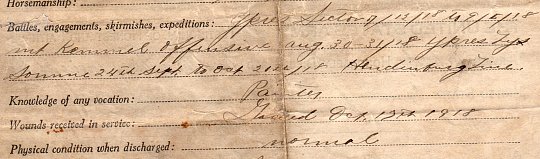 Horsemanship:
Battles, engagements, skirmishes, expeditions: Ypres Sector 9/13/18 to 9/5/18
mt Kemmel Offensive aug. 30-31/18 Ypres Lys
Somme 24th Sept to Oct 20th/18 Hendenburg Line
Knowledge of any vocation: Painter
Wounds received in service: Gassed Oct 13th 1918
Physical condition when discharged: normal